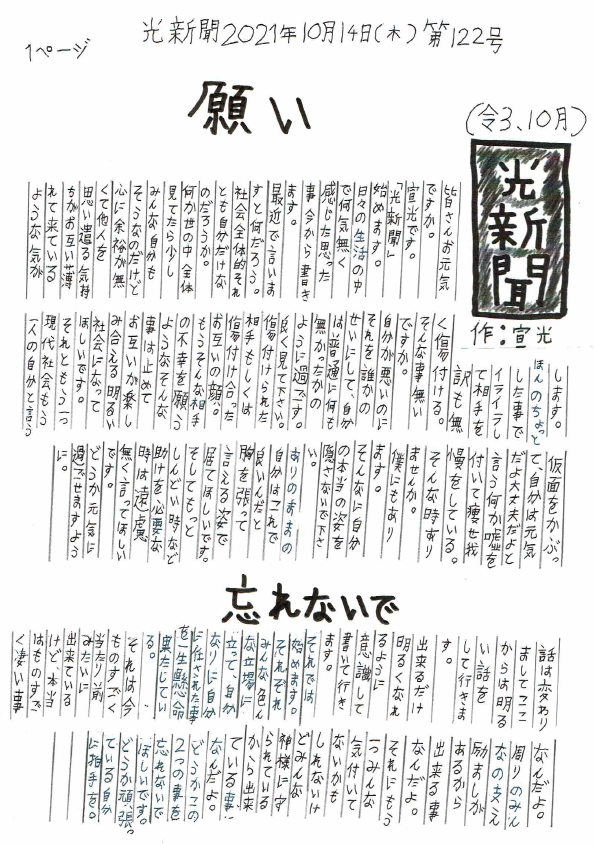 1ページ
光新聞2021年10月14日(木)第122号
願い
(令3、10月)
光新聞
作：宣光
皆さんお元気
ですか。
宣光です。
「光新聞」
始めます。
日々の生活の中
で何気無く
感じた思った
事今から書き
ます。
最近で言いま
すと何だろう。
社会全体的それ
とも自分だけな
のだろうか。
何かせの中全体
見てたら少し
みんな自分も
そうなのだけど、
心に余裕が無
くて他人を
思い遣る気持
ちがお互い薄
れて来ている
ような気が
します。
ほんのちょっと
した事で
イライラし
て相手を
訳も無
く傷付ける。
そんな事無い
ですか。
自分が悪いのに
それを誰かの
せいにして、自分
は普通に何も
無かったかの
ように過ごす。
良く見て下さい。
傷付けられた
相手もしくは
傷付け合った
お互いの顔。
もうそんな相手
の不幸を願う
ようなそんな
事は止めて
お互いが楽し
み合える明るい
社会になって
ほしいです。
それともう一つ
現代社会もう
一人の自分と言う
仮面をかぶっ
て、自分は元気
だよ大丈夫だよと
言う何か嘘を
付いて痩せ我
慢をしている。
そんな時あり
ませんか。
僕にもあり
ます。
そんなに自分
の本当の姿を
隠さないで下さ
い。
ありのままの
自分はこれで
良いんだと
胸を張って
言える姿で
居てほしいです。
そしてもっと
しんどい時など
助けを必要な
時は遠慮
無く言ってほしい
です。
どうか元気に
過ごせますよう
に。
忘れないで
話は変わり
ましてここ
からは明る
い話を
して行きま
す。
出来るだけ
明るくなれ
るように
意識して
書いて行き
ます。
それでは
始めます。
それぞれ
みんな色ん
な立場に
立って、自分
なりに自分
に任された事
を一生懸命
果たしてい
る。
それは今
ものすごく
当たり前
みたいに
出来ている
けど、本当
はものすご
く凄い事
なんだよ。
周りのみん
なの支え
励ましが
あるから
出来る事
なんだよ。
それにもう
一つみんな
気付いて
ないかも
しれないけ
どみんな
神様に守
られている
から出来
ている事
なんだよ。
どうかこの
2つの事を
忘れないで
ほしいです。
どうか頑張っ
ている自分
に拍手を。